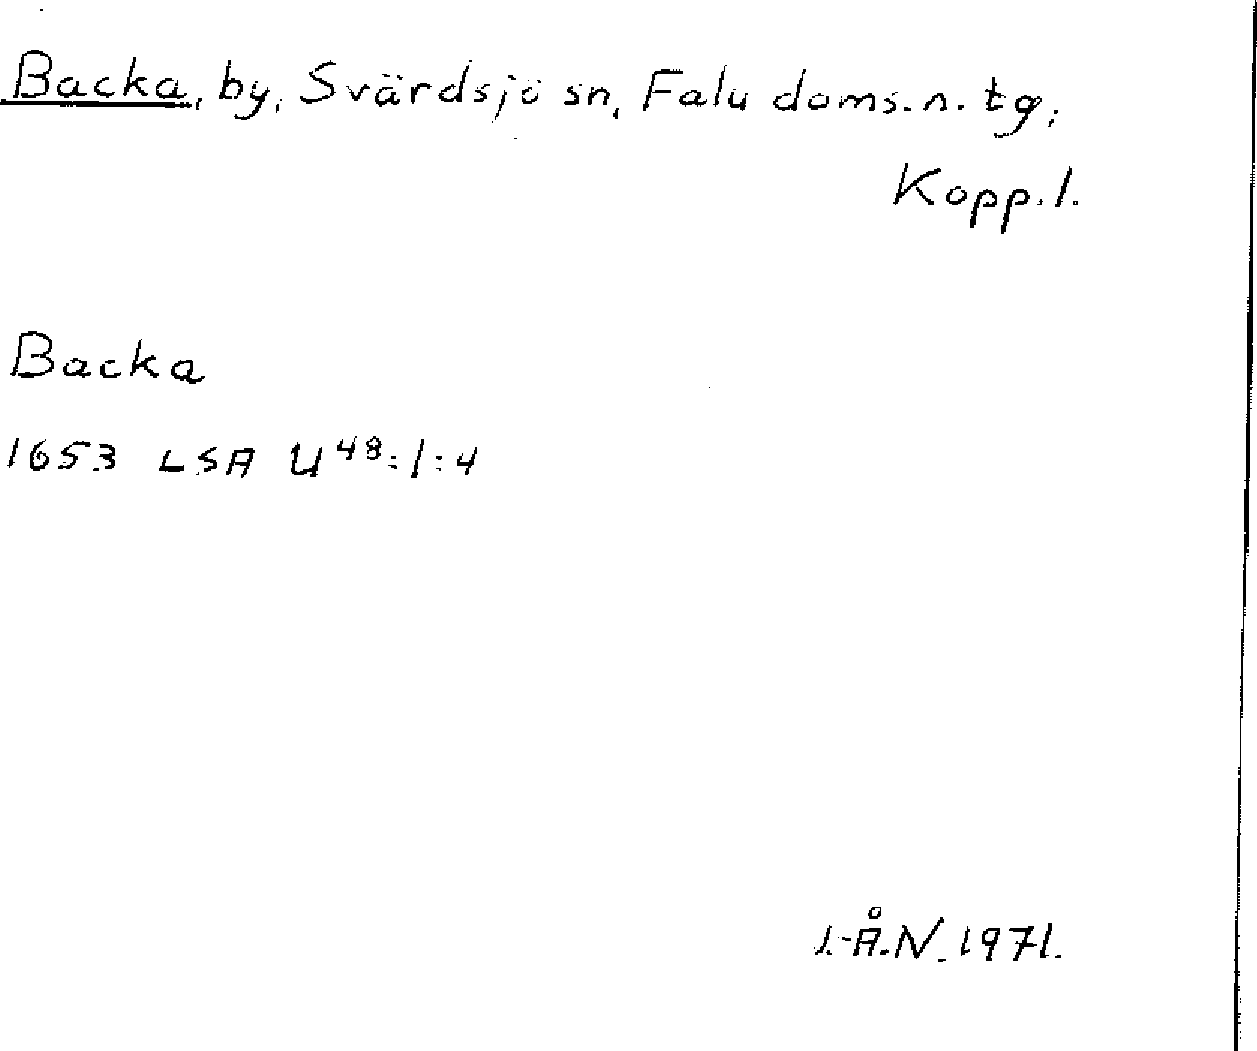 Backa, by, Svärdsjö sn, Falu doms.n. tg,
Kopp.l.
Backa
1653 LSA U48:1:4
I.-Å.N. 1971.